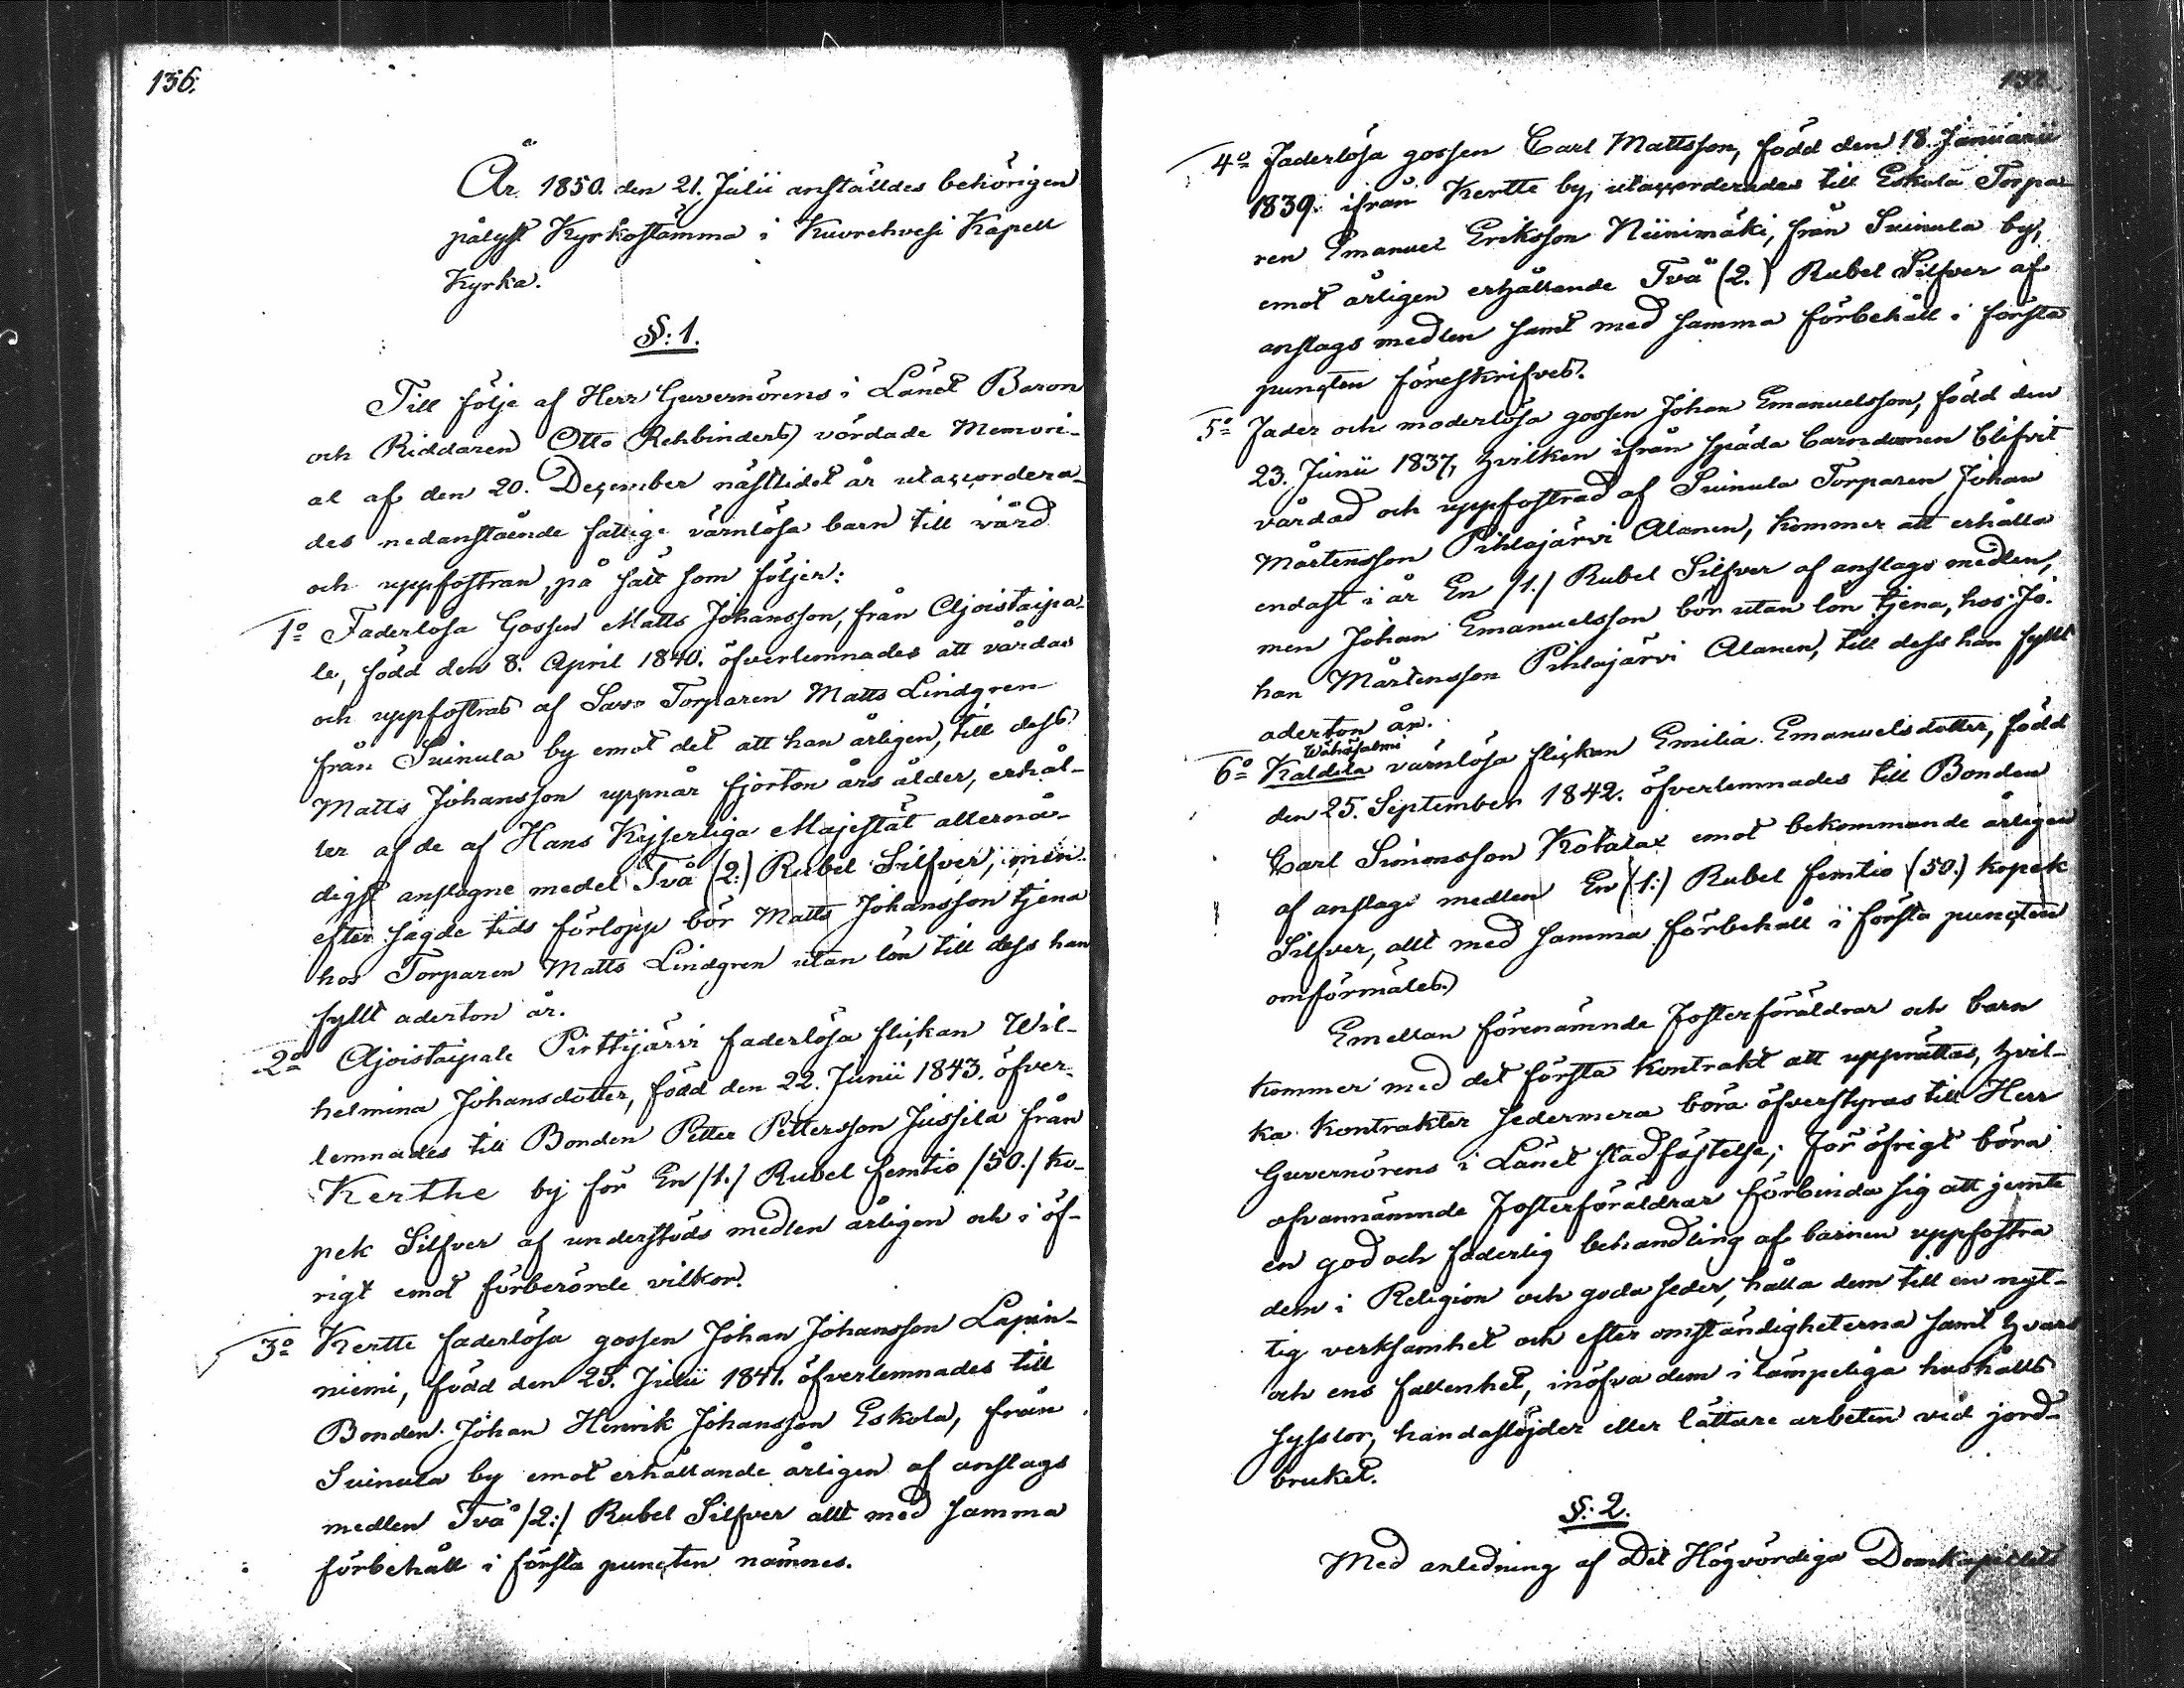 136.
År 1850. den 21. Julii anställdes behörigen
pålyst Kyrkostämma i Kuorehvesi Kapell
Kyrka.
§: 1.
Till följe af Herr Guvernörens i Länet Baron
och Riddaren Otto Rehbinders vördade Memori-
al af den 20. December nästlidet år utaccordera-
des nedanstående fattige värnlösa barn till wård
och uppfostran, på sätt som följer:
1º Faderlösa Gossen Matts Johansson, från Ajoistaipa-
le, född den 8. April 1840. öfverlemnades att vårdas
och uppfostras af Savo Torparen Matts Lindgren
från Suinula by emot det att han årligen, till dess
Matts Johansson uppnår fjorton års ålder, erhål-
ler af de af Hans Kejserliga Majestät allernå-
digst anslagne medel Två (2:) Rubel Silfver, men
efter sagde tids förlopp bör Matts Johansson tjena
hos Torparen Matts Lindgren utan lön till dess han
fyllt aderton år.
2º Ajoistaipale Pirttijärvi faderlösa flickan Wil-
helmina Johansdotter, född den 22. Junii 1843. öfver-
lemnades till Bonden Petter Pettersson Jussila från
Kerthe by för En /1./ Rubel femtio /50./ ko-
pek Silfver af understöds medlen årligen och i öf-
rigt emot förberörde vilkor.
3º Kertte faderlösa gossen Johan Johansson Lapin-
niemi, född den 25. Julii 1841. öfverlemnades till
Bonden Johan Henrik Johansson Eskola, från
Suinula by emot erhållande årligen af anslags
medlen Två /2:/ Rubel Silfver allt med samma
förbehåll i första puncten nämnes.
4º Faderlösa gossen Carl Mattsson, född den 18. Januarii
1839. ifrån Kertte by, utaccorderades till Eskola Torpa-
ren Emanuel Eriksson Niinimäki, från Suinula by,
emot årligen erhållande Två (2.) Rubel Silfver af
anslags medlen samt med samma förbehåll i första
puncten föreskrifves.
5º Fader och moderlösa gossen Johan Emanuelsson, född den
23. Junii 1837, hvilken ifrån späda barndomen blifvit
vårdad och uppfostrad af Suinula Torparen Johan
Mårtensson Pihlajärvi Alanen, kommer att erhålla
endast i år En /1./ Rubel Silfver af anslags medlen,
men Johan Emanuelsson bör utan lön tjena, hos Jo-
han Mårtensson Pihlajärvi Alanen, till dess han fyllt
aderton år.
Wähäsalmi
6º Kaldila värnlösa flickan Emilia Emanuelsdotter, född
den 25. September 1842. öfverlemnades till Bonden
Carl Simonsson Kokala emot bekommande årligen
af anslags medlen En (1:) Rubel femtio (50.) kopek
Silfver, allt med samma förbehåll i första puncten
omförmäles.
Emellan förenämnde Fosterföräldrar och barn
kommer med det första kontrakt att upprättas, hvil-
ka kontrakter sedermera böra öfverstyras till Herr
Guvernörens i Länet stadfästelse; För öfrigt böra
ofvannämnde Fosterföräldrar förbinda sig att jemte
en god och faderlig behandling af barnen uppfostra
dem i Religion och goda seder, hålla dem till en nyt-
tig verksamhet och efter omständigheterna samt hvars
och ens fallenhet, inöfva dem i lämpeliga hushålls
sysslor, handaslöjder eller lättare arbeten vid jord-
bruket.
§: 2.
Med anledning af Det Högvördiga Domkapitlets